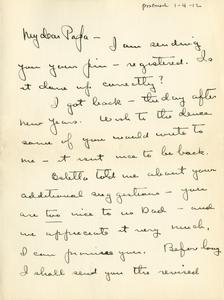 postmark 1-4-12
My dear Papa — I am sending
you your pin — registered. Is
it done up correctly?
I got back — the day after
new years. Wish to the deuce
some of you would write to
me — it isn't nice to be back.
told me about your
additional suggestions — you
are two nice to us Dad — and
we appreciate it very much,
I can promise you. Before long
I shall send you the revised